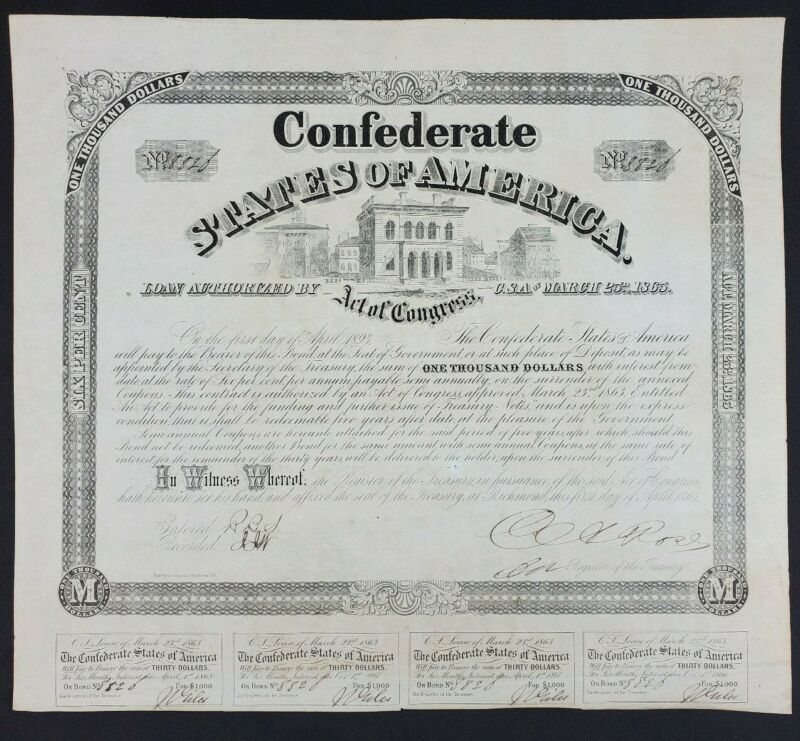 ONE THOUSAND DOLLARS
ONE THOUSAND DOLLARS
Confederate
No. 8828
No. 8828
STATES OF AMERICA.
LOAN AUTHORIZED BY Act of Congress, C.S.A. OF MARCH 23RD, 1863.
SIX PER CENT
ACT MARCH 23RD 1863
On the first day of April 1893, The Confederate States of America
will pay to the Bearer of this Bond, at the Seat of Government, or at such place of Deposit, as may be
appointed by the Secretary of the Treasury, the sum of ONE THOUSAND DOLLARS, with interest from
date at the rate of Six per cent per annum, payable semi annually, on the surrender of the annexed
Coupons. This contract is authorized by an Act of Congress, approved March 23rd 1863, Entitled
An Act to provide for the funding and further issue of Treasury Notes, and is upon the express
condition, that is shall be redeemable five years after date at the pleasure of the Government.
Semi annual Coupons, are hereunto attached for the said period of five years, after which should this
Bond not be redeemed, another Bond for the same amount, with semi annual Coupons, at the same rate of
interest, for the remainder of the thirty years, will be delivered to the holder, upon the surrender of this Bond.
In Witness Whereof, the Register of the Treasury, in pursuance of the said Act of Congress,
hath hereunto set his hand, and affixed the seal of the Treasury, at Richmond, this first day of April 1863.
Entered
Recorded
Rose
for Register of the Treasury
ONE THOUSAND M DOLLARS
ONE THOUSAND M DOLLARS
C. S. Loan of March 23rd 1863
The Confederate States of America
Will pay to Bearer the sum of THIRTY DOLLARS,
For Six Months Interest due April 1st 1868
ON BOND No 8828 FOR $1,000
For Register of the Treasury
C. S. Loan of March 23rd 1863
The Confederate States of America
Will pay to Bearer the sum of THIRTY DOLLARS,
For Six Months Interest due
ON BOND No 8828 FOR $1,000
For Register of the Treasury
C. S. Loan of March 23rd 1863
The Confederate States of America
Will pay to Bearer the sum of THIRTY DOLLARS,
For Six Months Interest due
ON BOND No 8828 FOR $1,000
For Register of the Treasury
C. S. Loan of March 23rd 1863
The Confederate States of America
Will pay to Bearer the sum of THIRTY DOLLARS,
For Six Months Interest due
ON BOND No 8828 FOR $1,000
For Register of the Treasury